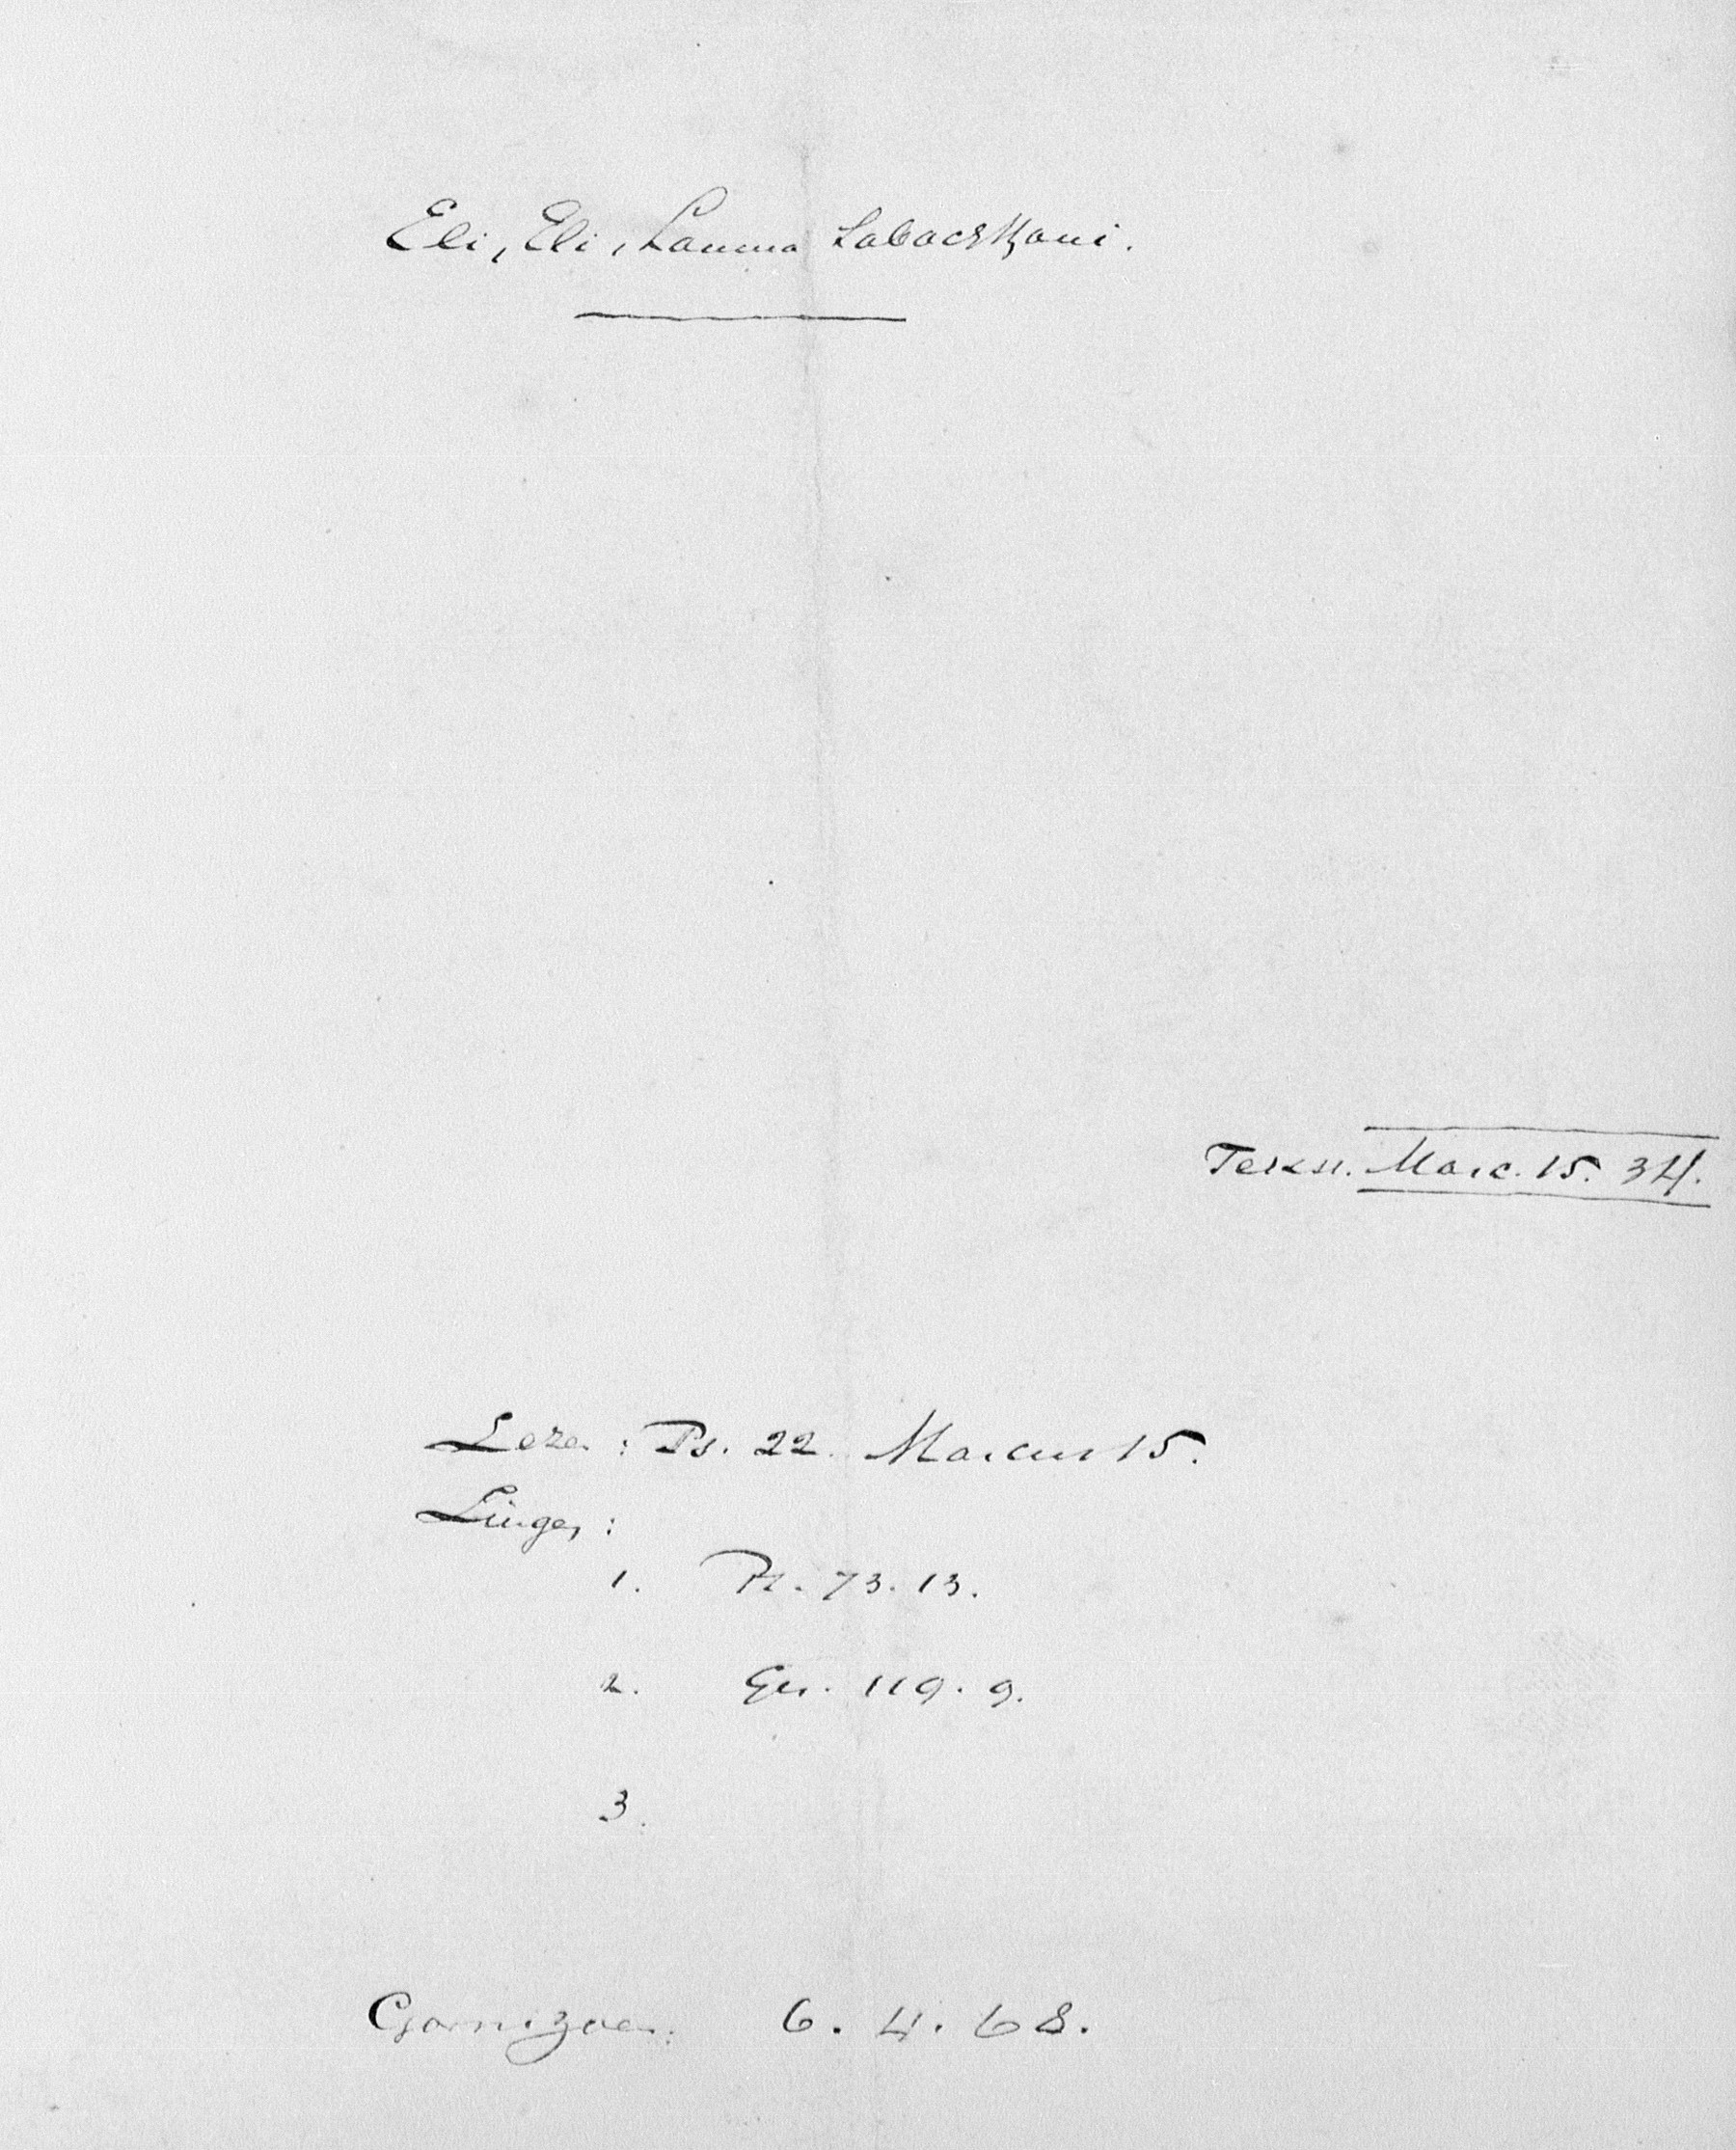 Eli, Eli, Lamma Sabachthani.
Tekst. Marc. 15. 34.
Leze : Ps. 22. Marcus 15.
Zinge :
1. Ps. 73. 13.
2. Gez. 119. 9.
3.
6. 4. 68.